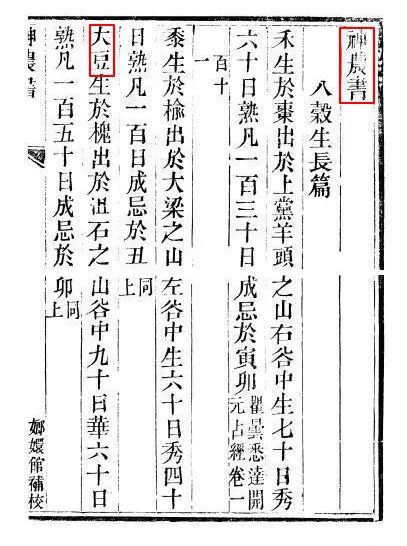 神農書
八穀生長篇
禾生於棗出於上黨羊頭之山右谷中生七十日秀
六十日熟凡一百三十日成忌於寅卯瞿曇悉達開
元占經卷一
百十
一
黍生於榆出於大梁之山左谷中生六十日秀四十
日熟凡一百日成忌於丑同上
大豆生於槐出於沮石之山谷中九十日華六十日
熟凡一百五十日成忌於卯同上
神農書
嫏嬛館補校